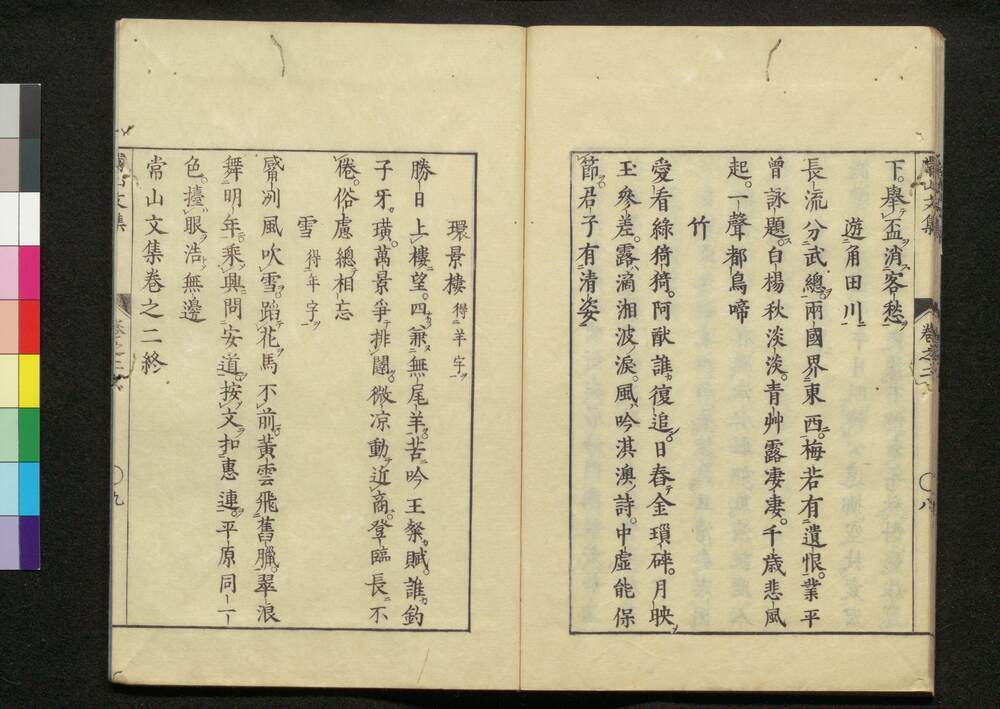 下。舉盃消客愁
遊角田川
長流分武總。兩國界東西。梅若有遺恨。業平
曾詠題。白楊秋淡淡。青艸露凄凄。千歳悲風
起。一聲都鳥啼
竹
愛看綠猗猗。阿猷誰復追。日舂金瑣碎。月映
玉參差。露滴湘波淚。風吟淇澳詩。中虛能保
節。君子有清姿
常山文集
卷之二
〇八
環景樓 得羊字
勝日上樓望。四兼無尾羊。苦吟王粲賦。誰釣
子牙璜。萬景爭排闥。微凉動近商。登臨長不
倦。俗慮總相忘
雪 得年字
觱冽風吹雪。蹈花馬不前。黃雲飛舊臘。翠浪
舞明年。乘興問安道。按文扣惠連。平原同一
色。擡眼浩無邊
常山文集卷之二終
常山文集
卷之二
〇九